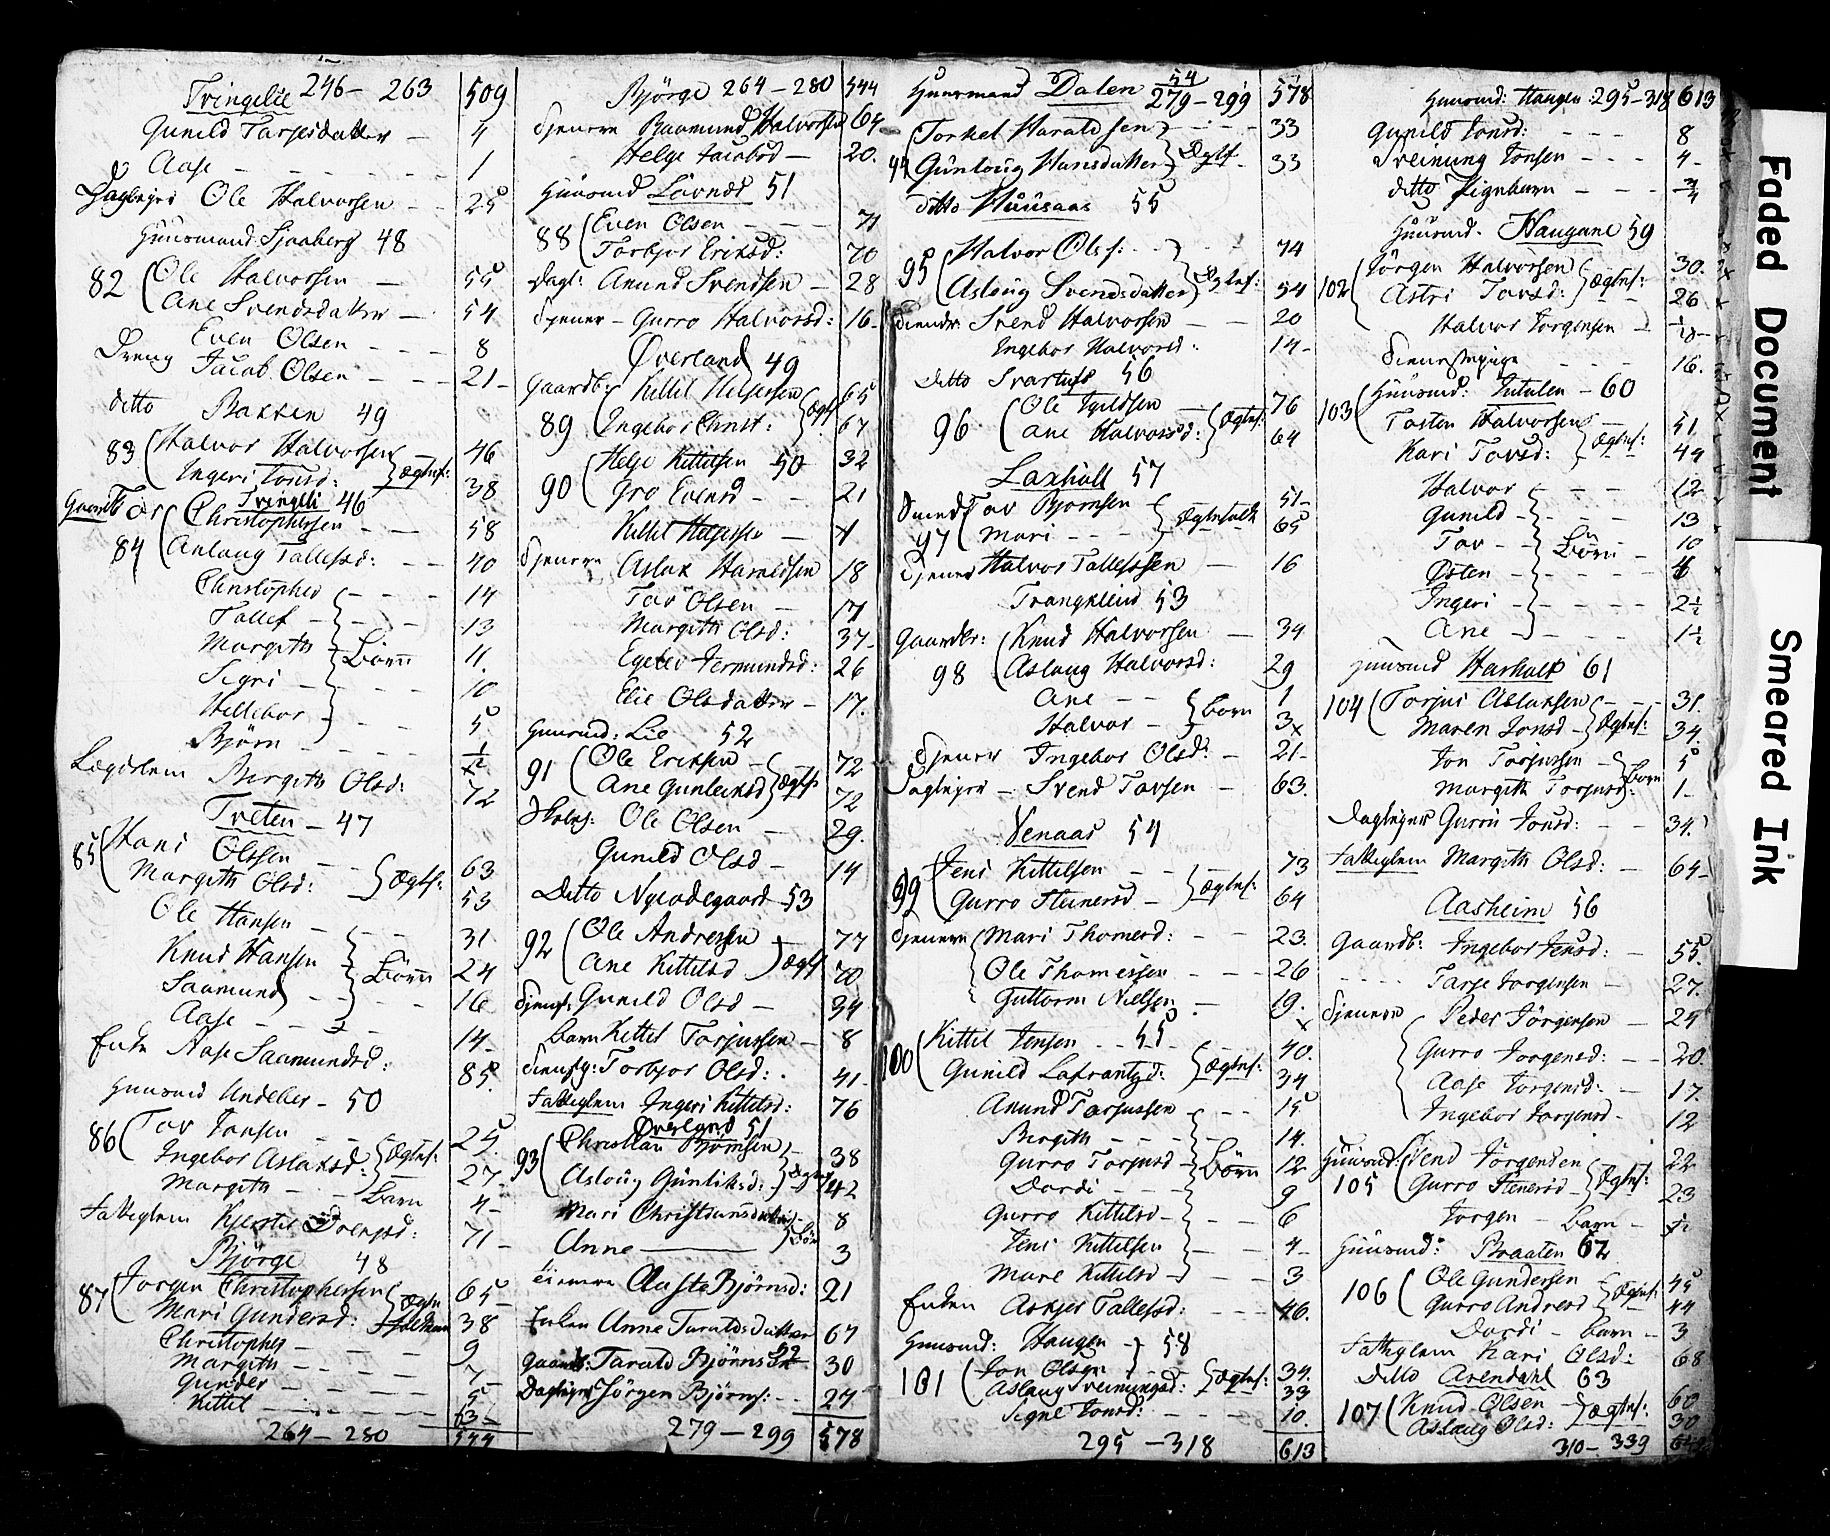 Tringelie 246 - 263 509
Gunild Tarjesdatter - 4
Aase - - - 1
Daglejer Ole Halvorsen - - 25
Huusmand Sjaaberg 48
82 Ole Halvorsen - 55
Ane Svendsdatter - 54
Even Olsen - - - 8
Dreng Jacob Olsen - - - 21
ditto Bakken 49
83 Halvor Halvorsen 46
Ingeri Tovsd: Ægtnf: 38
Tringelie 46
Christophersen - - 58
84 Anlaug Tallefsd: - - 40
Christopher - - - 14
Tallef - - - 13
Margith Börn 11
Sigri - - 10
Hellebor - - 5
Björn - - - 1/2
Legdslem Birgith Olsd: 72
Treten - 47
85 Hans Olssen - - 63
Margith Olsd: Ægtf: 53
Ole Hansen - - - 31
Knud Hansen Börn 24
Saamund - - - 16
Aase - - - 14
Enke Aase Saamundsd: 85
Huusmd Undeber - 50
86 Tov Jonsen - - 25
Ingebor Aslaksd: Ægtnf: 27
Margith - - Barn 4
Fatteglem 71
Björge 48
87 Jorgen Christophersen 65
Mari Gundersd: 38
Christopher - - - 9
Margith - - - 7
Gunder - - - 5
Kittel - - - 3
264 - 280 544
Björge 264 - 280 544
Tjenere Baamund Halvorsen 64
Helge Jacobsd - 20
Huusmd Lövnes 51
88 Even Olsen - - - 71
Torbjor Eriksd: 70
Dagl: Anund Svendsen - 28
Tjener - Gurro Halvorsd: 16
Överland 49
Gaardb: Kittil Helgesen 65
89 Ingebor Christ: Ægtf 67
90 Helje Kittelsen 50 32
Gro Evensd - - 21
Kittel Helgesen - 4
Tjenere Aslak Haraldsen 18
Tov Olsen - 17
Margith Olsd: 37
Jermundsd: 26
Elie Olsdatter - 17
Huusmd: Lie 52
91 Ole Eriksen - - 72
Ane Gunleiksd Ægtf 72
Ole Olsen - 29
Gunild Olsd - 14
Ditto Nyerodegaard 53
92 Ole Andresen - 77
Ane Kittelsd Ægtf 70
Gunild Olsd - 34
Barn Kittel Torjussen - 8
Torbjor Olsd: . 41
Fatteglem Ingeri Kittelsd: 76
Överland 51
93 Christian Björnsen - 38
Aslöug Günliksd: 42
Mari Christiansdatter 8
Anne - 3
Aaste Björnsd: 21
Enken Anne Taraldsdatter 67
Gaardb: Tarald Björnsen 30
Daglejer Jörgen Björns: - - 27
279 - 299 578
Huusmand Dalen 54 279 - 299 578
94 Torkel Haraldsen - - - 33
Günloug Hansdatter Ægtf - 33
ditto Huusaas 55
95 Halvor Ols: - - 74
Asloug Svendsdatter Ægtnf: 54
Tiender Svend Halvorsen - - 20
Ingebor Halvorsd: 14
Ditto Svartufs 56
96 Ole Kjeldsen - 76
Ane Halvorsd: Ægtnf: 64
Laxhöll 57
Tov Bjornsen 51
97 Mari - - - Ægtnfolk 65
Tjener Halvor Tallefssen - 16
Trangkleiv 53
Gaardbr: Knud Halvorsen - 34
98 Aslaug Halvorsd: 29
Ane - - 1
Halvor - Born 3
Tjener Ingebor Olsd: - 21
Daglejer - Svend Tovsen - 63
Venaas 54
99 Jens Kittelsen - - - 73
Gurro Steinersd - Ægtnf: 64
Tjenere Mari Thomesd: - - 23
Ole Thomessen - - - 26
Guttorm Nielsen - 19
100 Kittil Jensen - - 55 40
Gunild Lafrantzd: Ægtnf: 34
Anund Torjussen - - - 15
Birgith - - - 14
Gurro Torjusd - Börn 12
Dordi - - - 9
Gurro Kittelsd - - - 6
Jens Kittelsen - - 4
Mare Kittelsd - 3
Enken Askjer Tallefsd: - - - 46
Huusmd: Haugen 58
101 Jon Olsen 34
Aslaug Sveinungsd: Ægtnf: 33
Signe Jonsd: - - - 10
295 - 318 613
Huusmd: Haugen 295 - 318 613
Gunild Jonsd: - - - 8
Sveinung Jonsen - - - 4
ditto Pigebarn - - - 3/4
Huusmd. Haugane 59
102 Jörgen Halvorsen 30
Astri Tovsd: Ægtnf: 26
Halvor Jorgensen -
Tienestepige - - - 16
103 Huusmd: Jutulen - 60
Tosten Halvorsen - 51
Kari Tovsd: Ægtnf: 49
Halvor - - 12
Gunild - - 13
Tov - - Börn - 10
Östen - - - 4
Ingeri - - - 2 1/2
Ane - - - 1 1/2
Huusmd Harholt 61
104 Torjus Aslaksen - - - 31
Maren Jonsd - Ægtnf: 34
Jon Torjussen - 5
Margith Torjusd: Born 1
Daglejer Gurru Jonsd: - - 34
Fatteglem Margith Olsd: - 64
Aasheim 56
Gaardb: Ingebor Jensd: - 55
Tarje Jorgensen - - 27
Tjenere Peder Jörgensen - 24
Gurro Jorgensd: - - 20
Aase Jorgensd: - 17
Ingebor Jorgensd - 12
Huusmd: Svend Jorgensen 22
105 Gurro Stenersd - Ægtnf: 23
Jorgen - Barn -
Huusmd: Braaten 62
106 Ole Gundersen - 45
Gurro Andresd Ægtnf: 44
Dordi - Barn - 3
Fatteglem Kari Olsd: 68
Ditto Arendahl 63
107 Knud Olsen 60
Aslaug Olsd: Ægtnf: 30
310 - 339
Faded Document
Smeared Ink